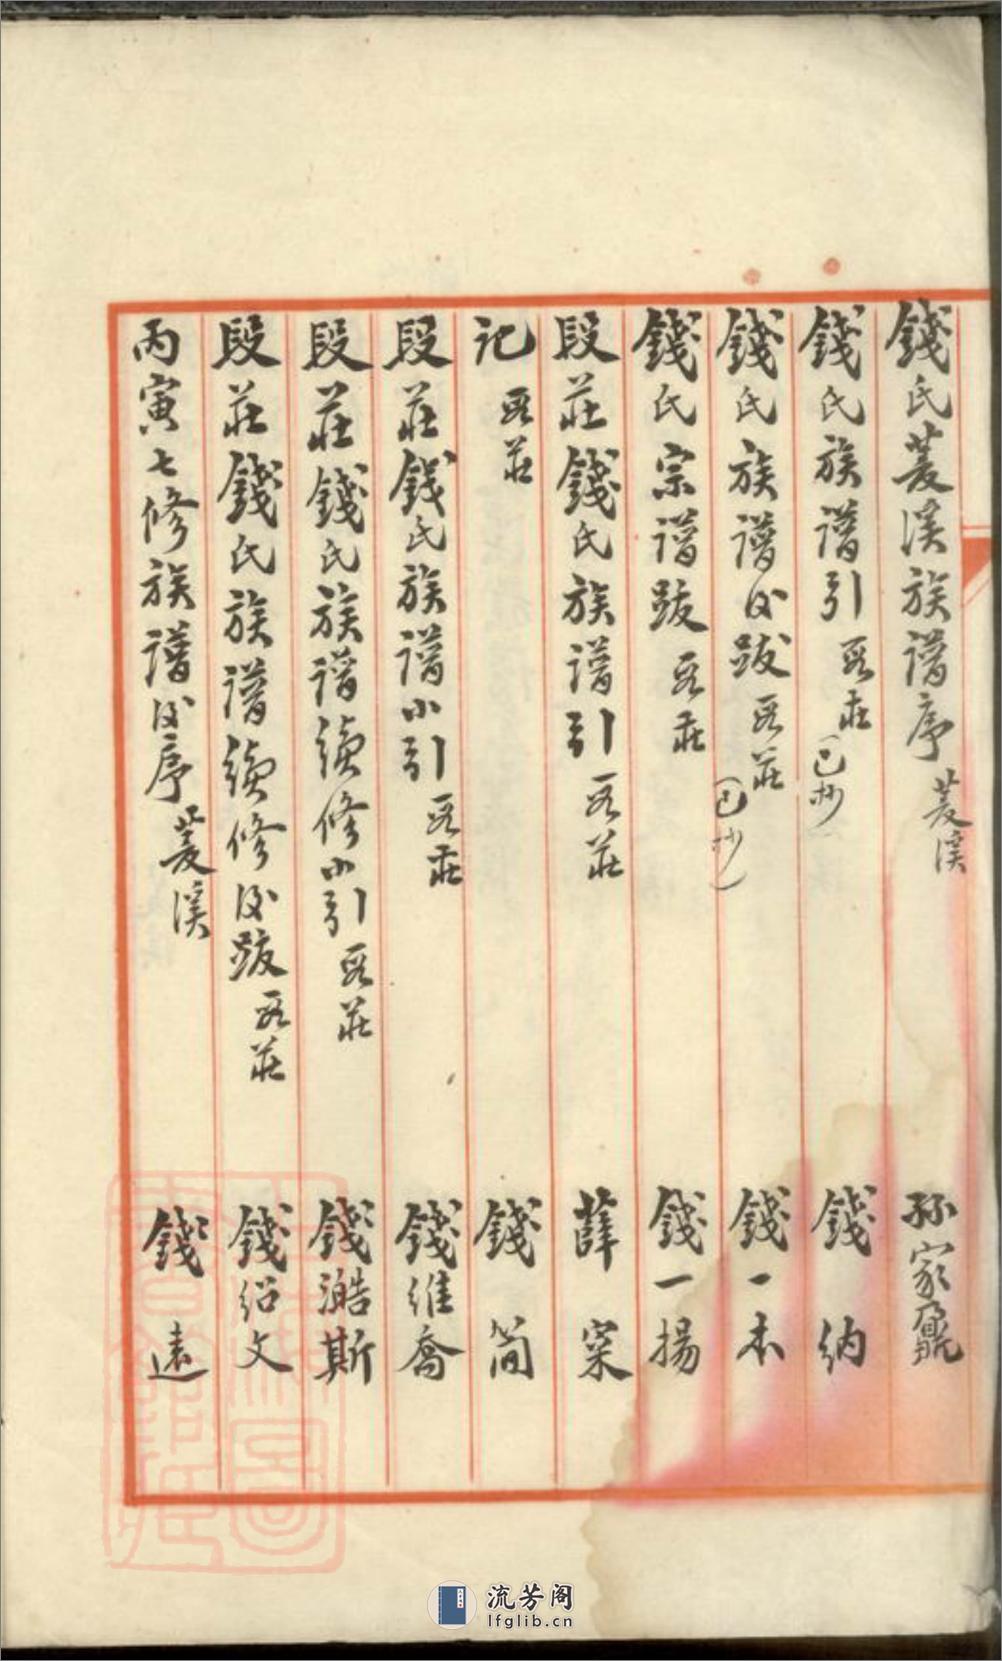 錢氏菱溪族譜序 菱溪 孫家□
錢氏族譜引 段莊（已抄 錢納
錢氏族譜後跋 段莊（已抄） 錢一本
錢氏宗譜跋 段莊 錢一揚
段莊錢氏族譜引 段莊 薛寀
記 段莊 錢簡
段莊錢氏族譜小引 段莊 錢維喬
段莊錢氏族譜續修小引 段莊 錢澔斯
段莊錢氏族譜續修後跋 段莊 錢紹文
丙寅七修族譜後序 菱溪 錢遠
流芳阁
lfglib.cn